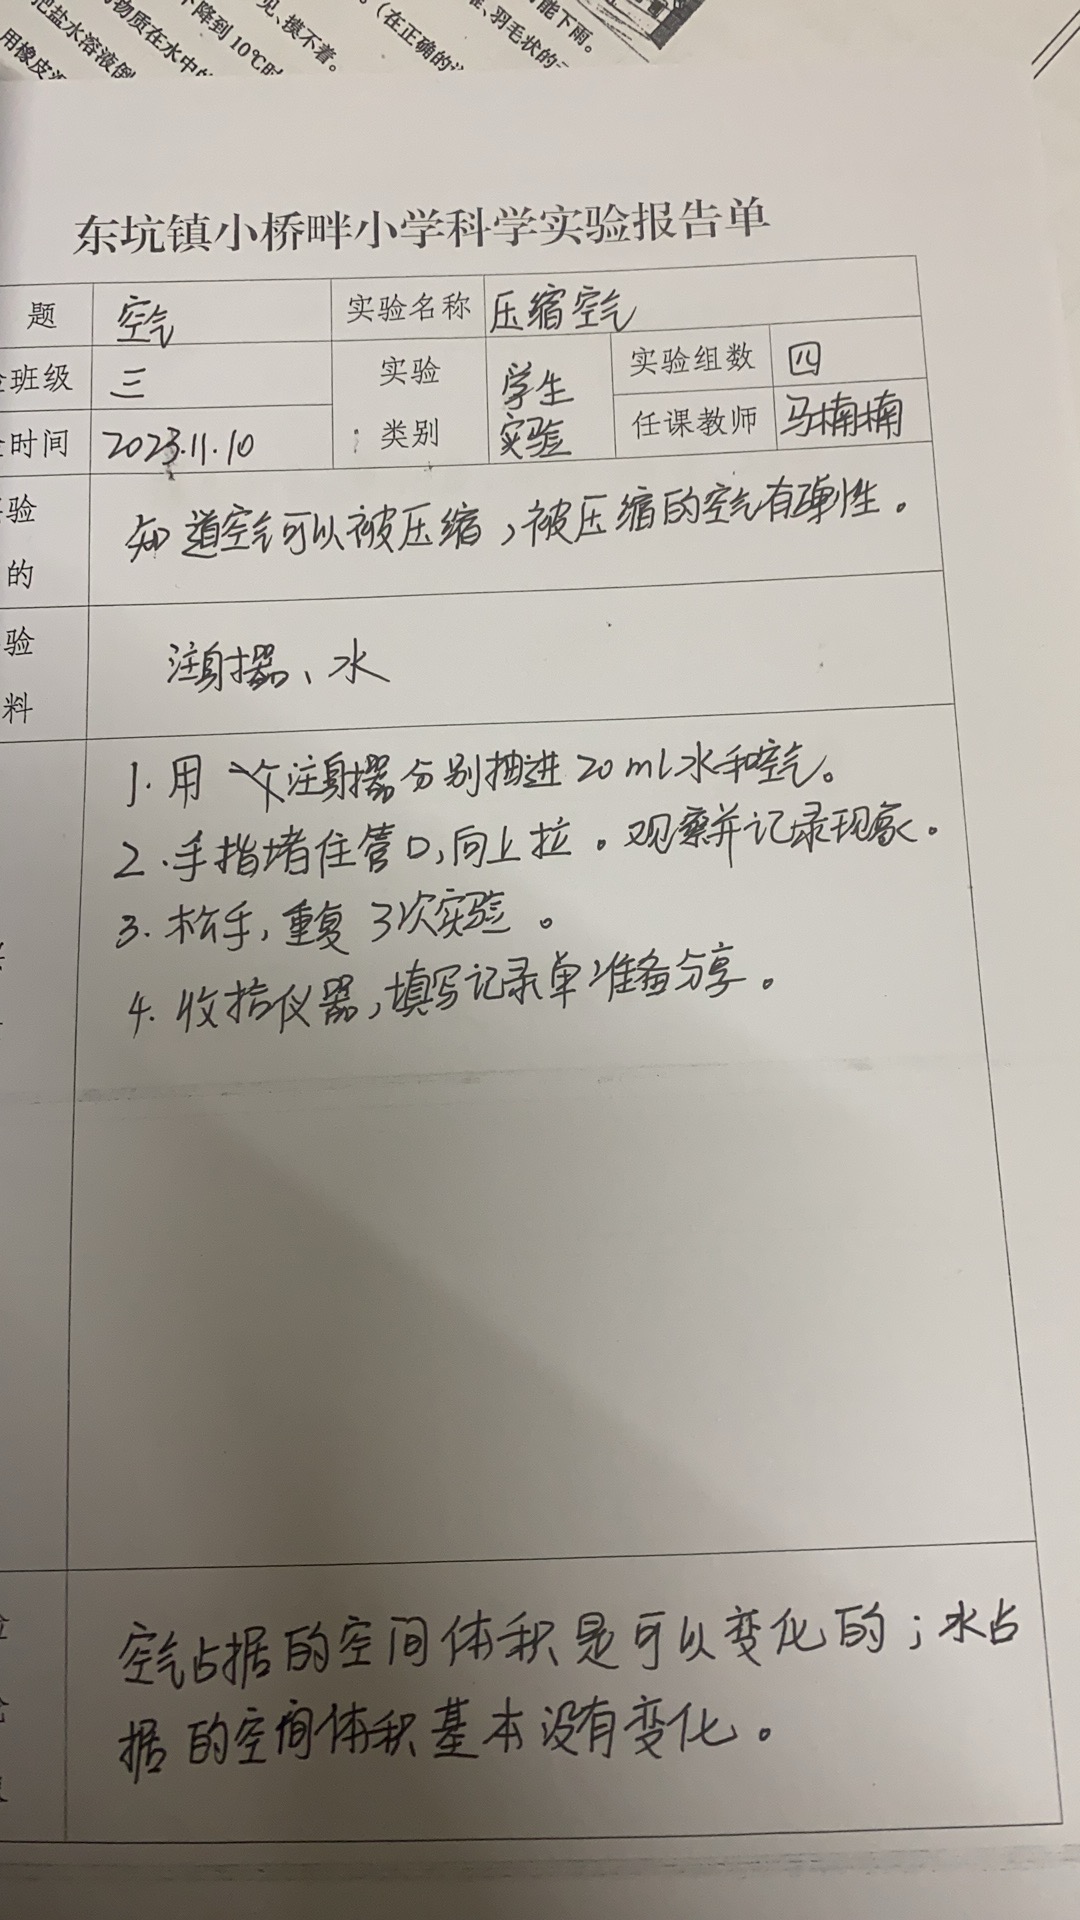 把盐水溶液倒
物质在水中的
下降到10℃时
见、摸不着。
。（在正确的
、羽毛状的
可能下雨。
用橡皮
东坑镇小桥畔小学科学实验报告单
题 空气 实验名称 压缩空气
班级 三 实验类别 学生实验 实验组数 四
时间 2023.11.10 任课教师 马楠楠
验
的
知道空气可以被压缩,被压缩的空气有弹性。
验
料
注射器、水
1.用 个注射器分别抽进20ml水和空气。
2.手指堵住管口,向上拉。观察并记录现象。
3.松手,重复3次实验。
4.收拾仪器,填写记录单准备分享。
空气占据的空间体积是可以变化的;水占
据的空间体积基本没有变化。